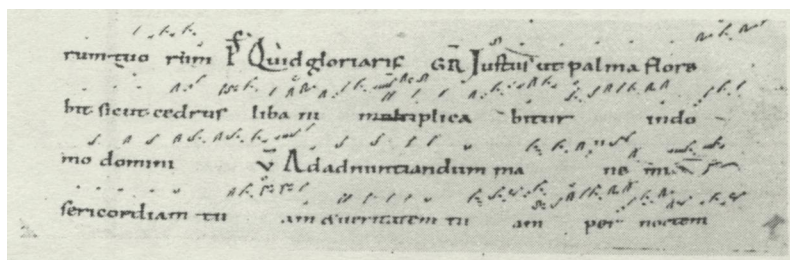 rum tuo rum Ps Quid gloriaris GR Justus ut palma flore
bit sicut cedrus liba ni multiplica bitur indo
mo domini V Ad adnuntiandum ma ne mi
sericordiam tu am & veritatem tu am per noctem